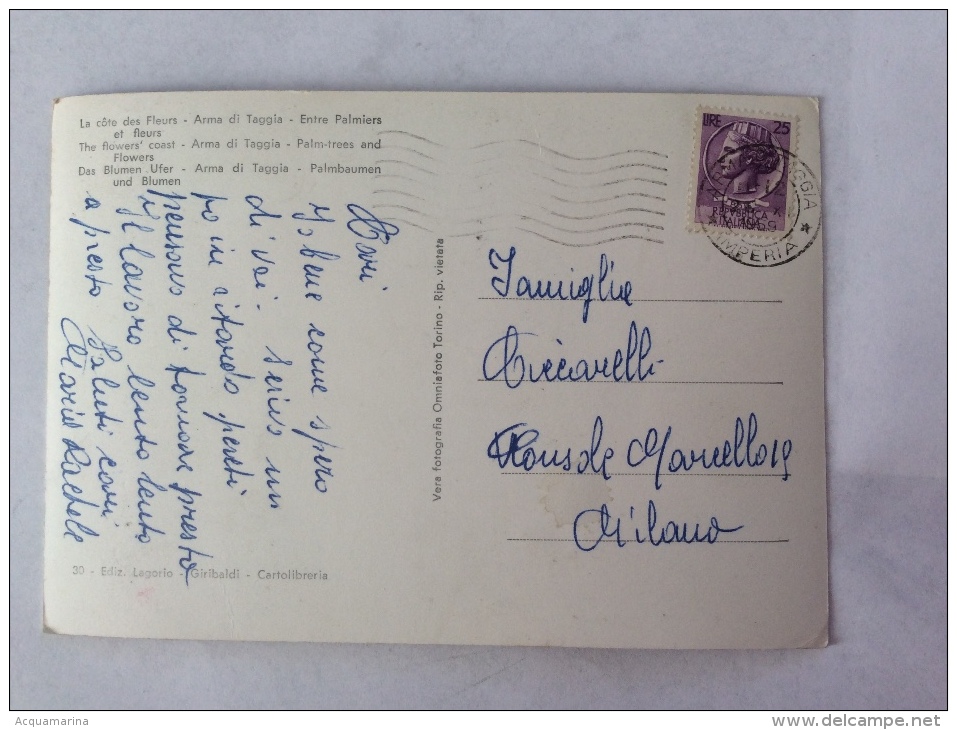 La côte des Fleurs - Arma di Taggia - Entre Palmiers
et fleurs
The flowers' coast - Arma di Taggia - Palm-trees and
Flowers
Das Blumen Ufer - Arma di Taggia - Palmbaumen
und Blumen
LIRE 25
REPVBBLICA
ITALIANA
TAGGIA
IMPERIA
Cari
bene come spero
di voi - scrivo un
po in ritardo
di tornare presto
il lavoro lento lento
a presto Saluti cari
Maria Rachele
Vera fotografia Omniafoto Torino - Rip. vietata
Famiglia
Ciccarelli
Console Marcello 19
Milano
30 - Ediz. Lagorio - Giribaldi - Cartolibreria
Acquamarina
delcampe.net